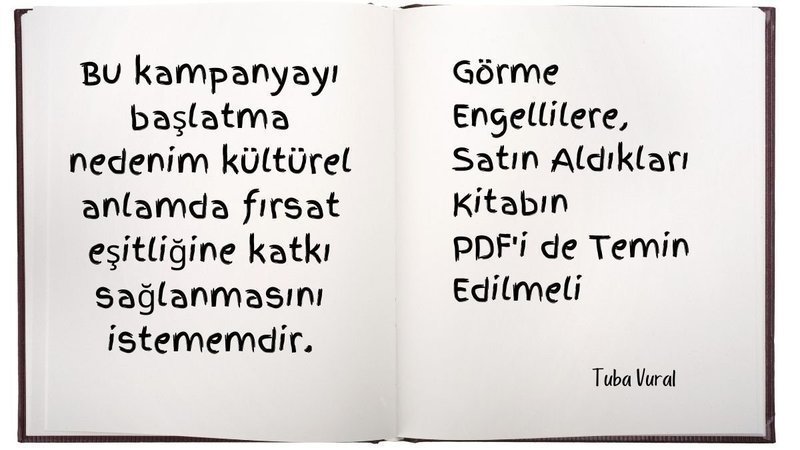 Bu kampanyayı
başlatma
nedenim kültürel
anlamda fırsat
eşitliğine katkı
sağlanmasını
istememdir.
Görme
Engellilere,
Satın Aldıkları
Kitabın
PDF'i de Temin
Edilmeli
Tuba Vural